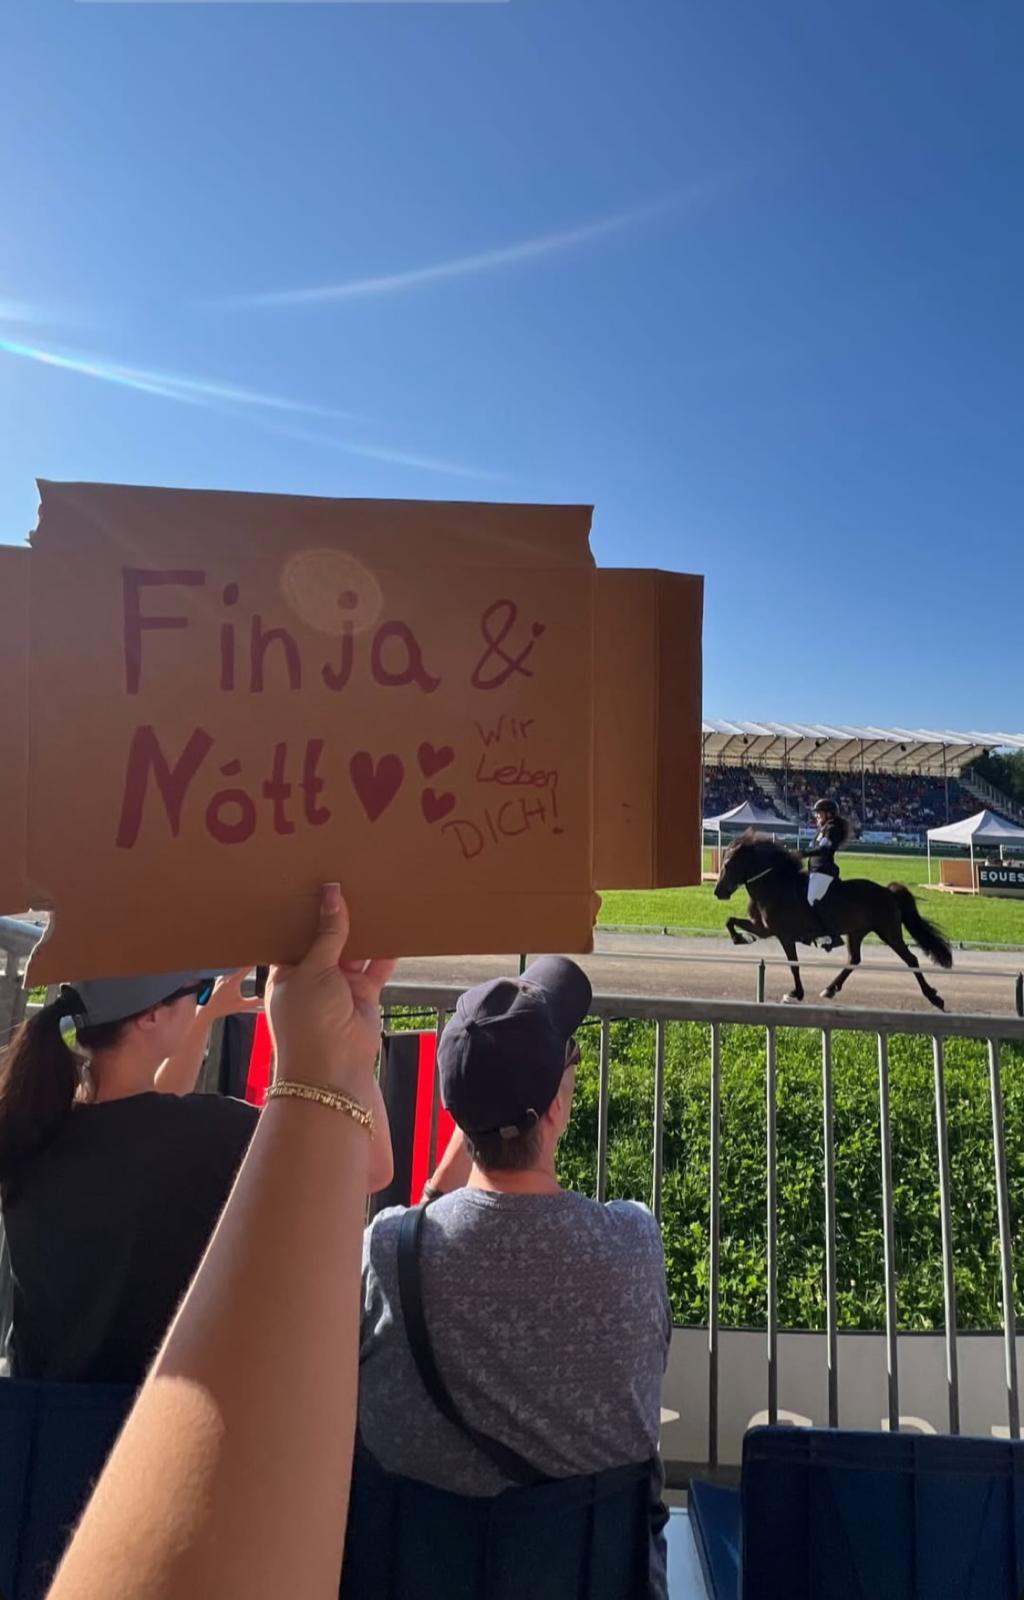 Finja &
Nótt ♥♥♥
Wir
Leben
DICH!
EQUES